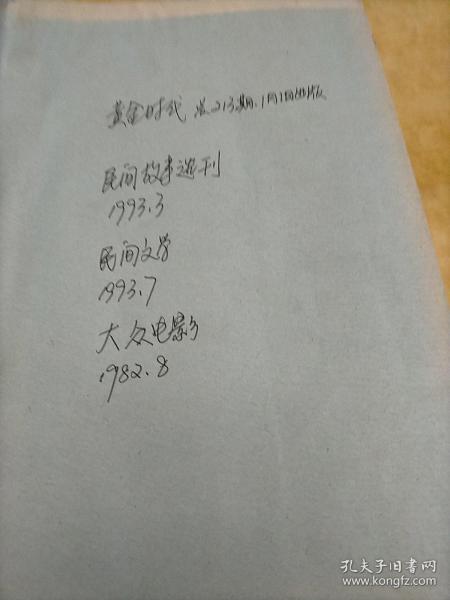 黄金时代 总213期.1月1日出版
民间故事选刊
1993.3
民间文学
1993.7
大众电影
1982.8
孔夫子旧书网
www.kongfz.com